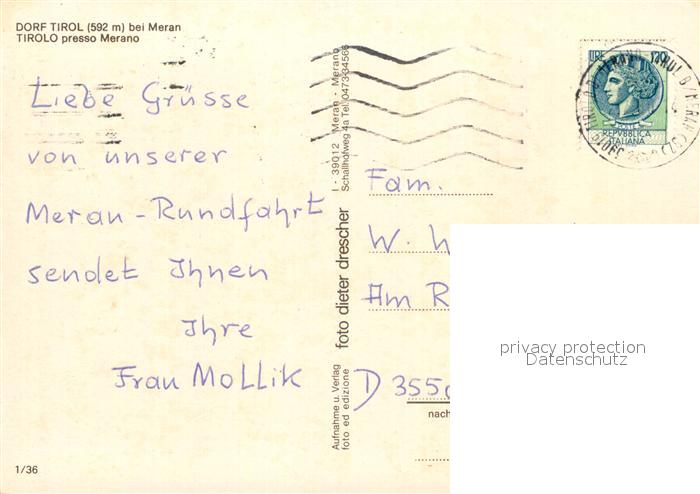 DORF TIROL (592 m) bei Meran
TIROLO presso Merano
Liebe Grüsse
von unserer
Meran-Rundfahrt
sendet Ihnen
Ihre
Frau Mollik
1/36
Aufnahme u. Verlag
foto ed edizione
foto dieter drescher
I - 39012 Meran - Merano
Schallhofweg 4a Tel. 0473-34566
LIRE 120
POSTE
REPVBBLICA
ITALIANA
Fam.
W.
Am R
D 355
nach
privacy protection
Datenschutz